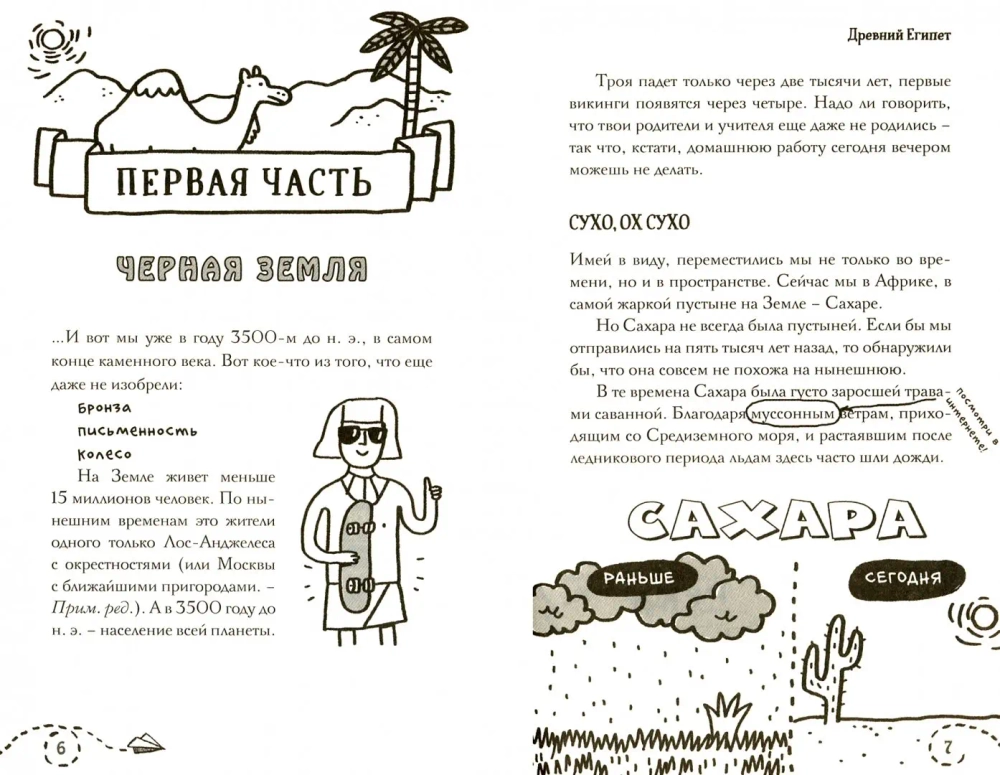 ПЕРВАЯ ЧАСТЬ
ЧЕРНАЯ ЗЕМЛЯ
...И вот мы уже в году 3500-м до н. э., в самом
конце каменного века. Вот кое-что из того, что еще
даже не изобрели:
Бронза
Письменность
Колесо
На Земле живет меньше
15 миллионов человек. По ны-
нешним временам это жители
одного только Лос-Анджелеса
с окрестностями (или Москвы
с ближайшими пригородами. –
Прим. ред.). А в 3500 году до
н. э. – население всей планеты.
6
Древний Египет
Троя падет только через две тысячи лет, первые
викинги появятся через четыре. Надо ли говорить,
что твои родители и учителя еще даже не родились –
так что, кстати, домашнюю работу сегодня вечером
можешь не делать.
СУХО, ОХ СУХО
Имей в виду, переместились мы не только во вре-
мени, но и в пространстве. Сейчас мы в Африке, в
самой жаркой пустыне на Земле – Сахаре.
Но Сахара не всегда была пустыней. Если бы мы
отправились на пять тысяч лет назад, то обнаружили
бы, что она совсем не похожа на нынешнюю.
В те времена Сахара была густо заросшей трава-
ми саванной. Благодаря муссонным ветрам, прихо-
дящим со Средиземного моря, и растаявшим после
ледникового периода льдам здесь часто шли дожди.
посмотри в
интернете!
САХАРА
РАНЬШЕ
СЕГОДНЯ
7